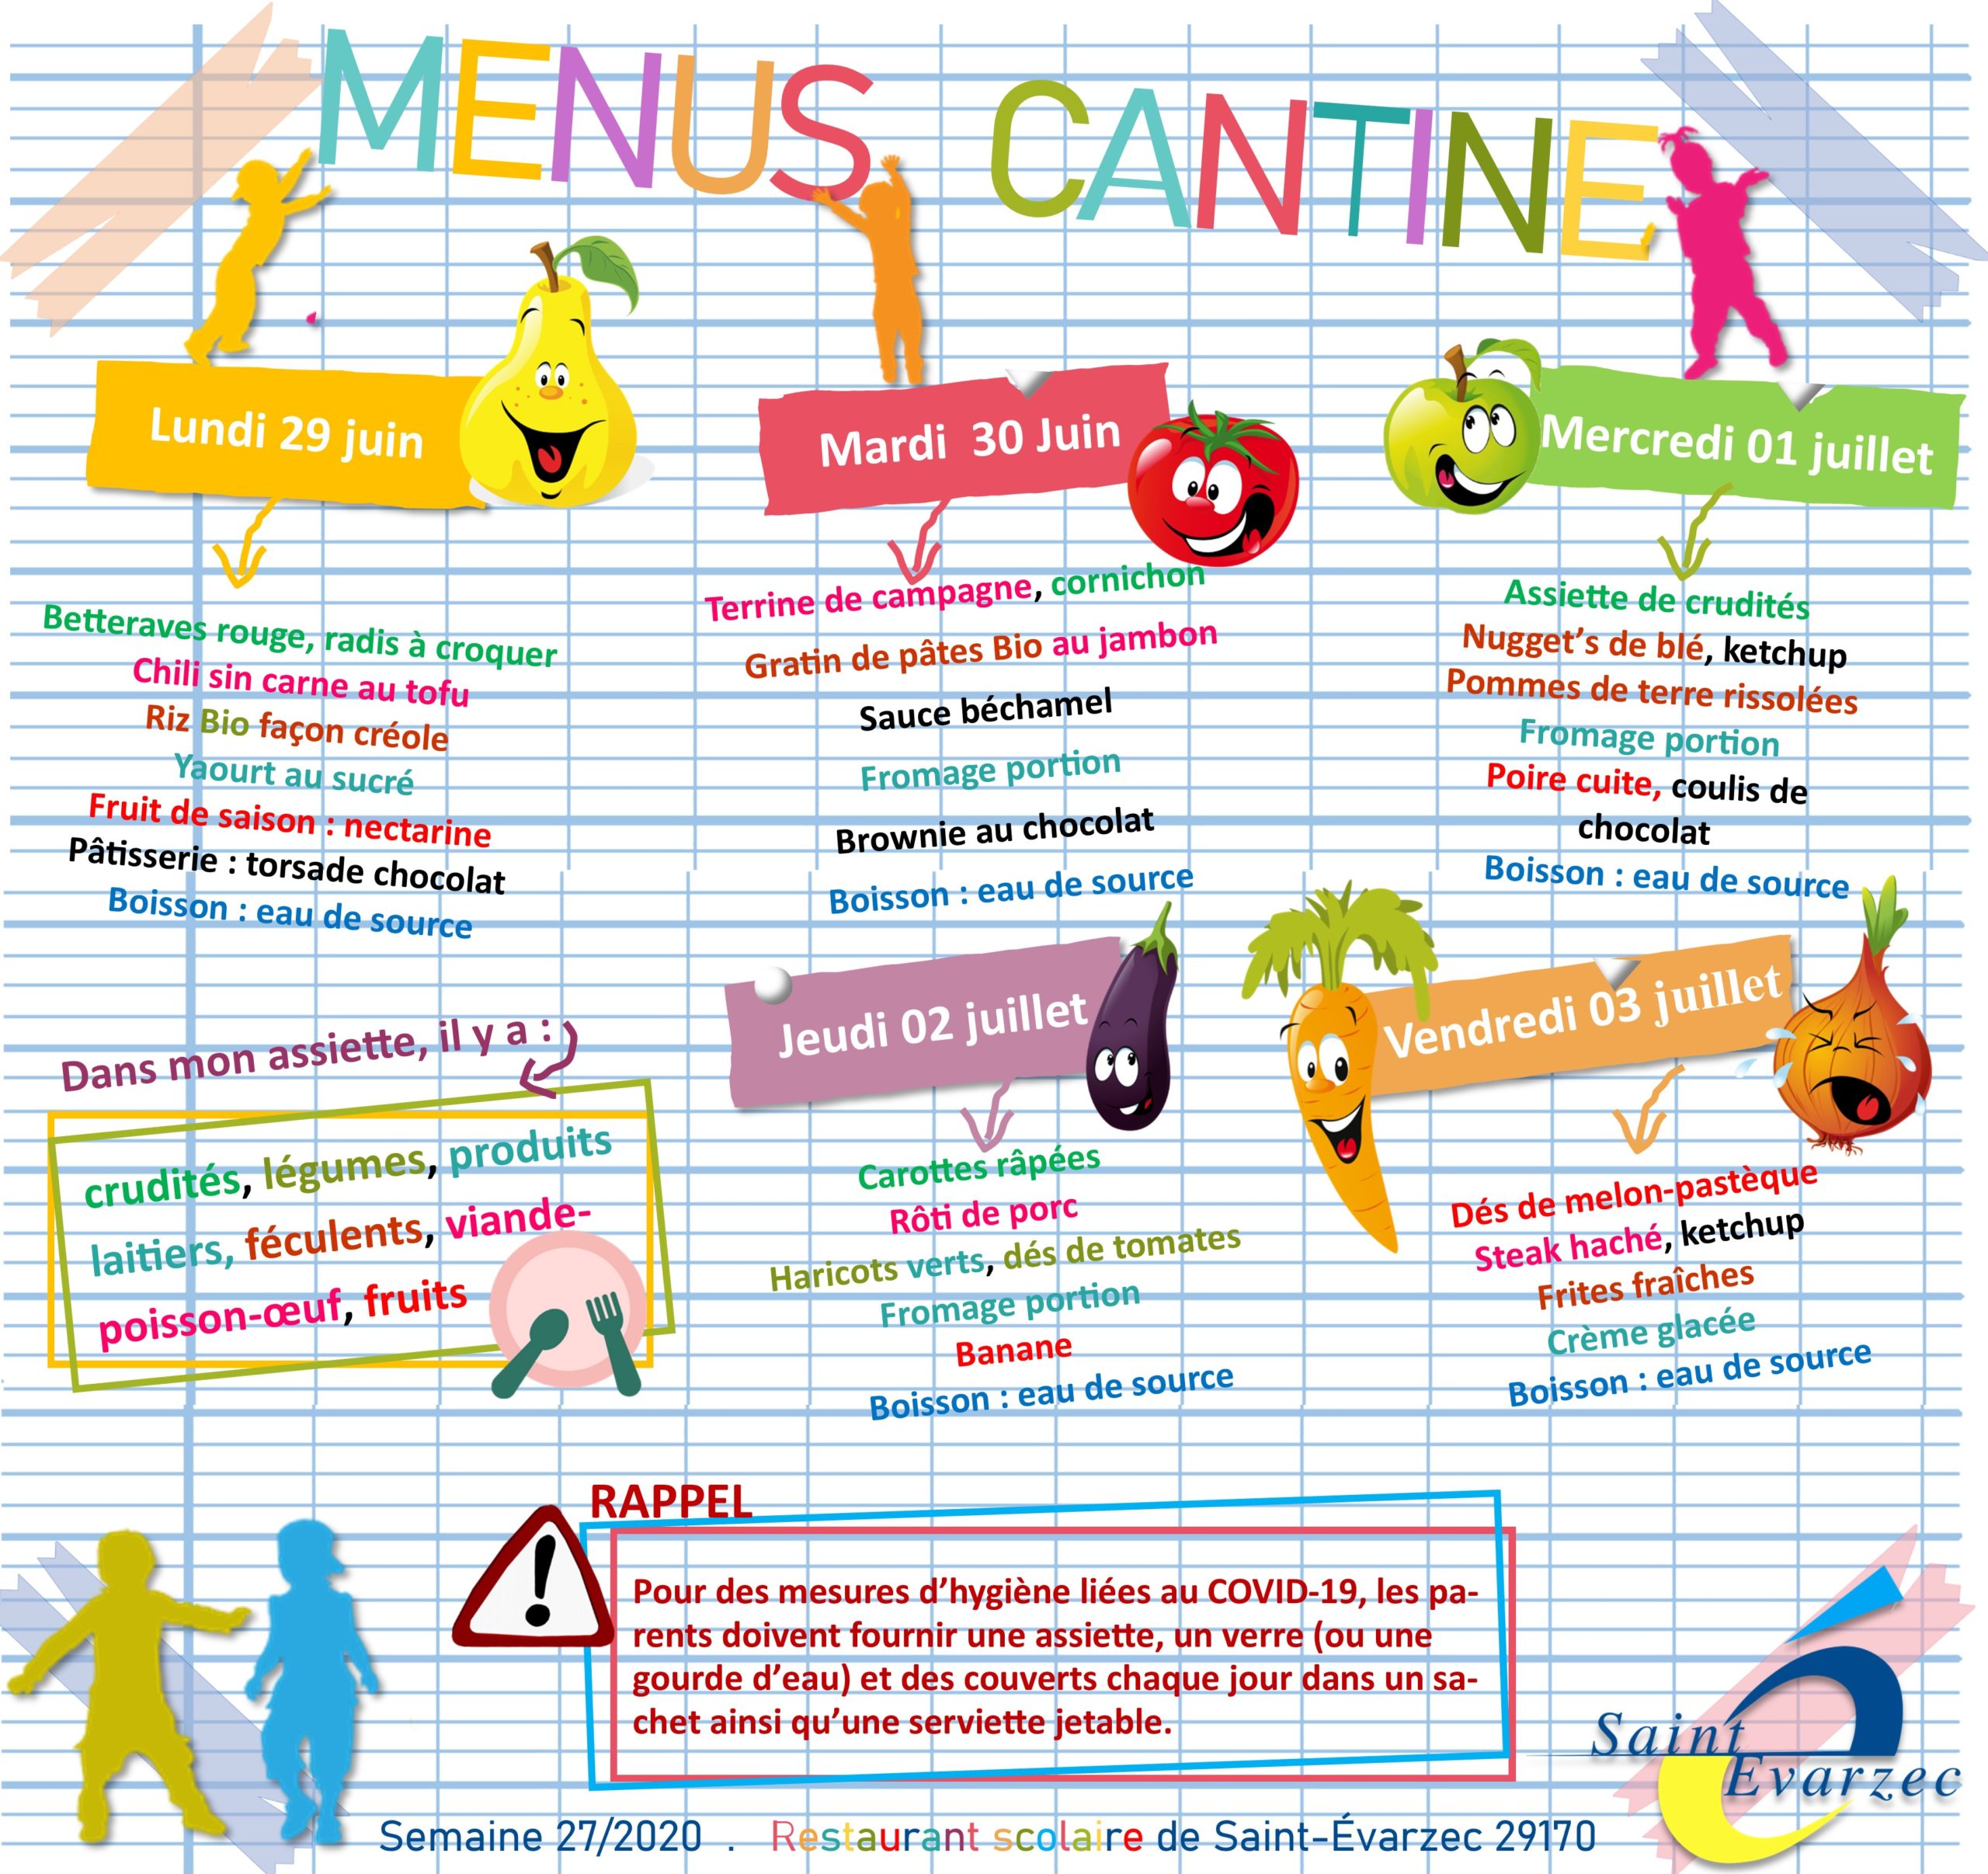 MENUS CANTINE
Lundi 29 juin
Betteraves rouge, radis à croquer
Chili sin carne au tofu
Riz Bio façon créole
Yaourt au sucré
Fruit de saison : nectarine
Pâtisserie : torsade chocolat
Boisson : eau de source
Mardi 30 Juin
Terrine de campagne, cornichon
Gratin de pâtes Bio au jambon
Sauce béchamel
Fromage portion
Brownie au chocolat
Boisson : eau de source
Mercredi 01 juillet
Assiette de crudités
Nugget’s de blé, ketchup
Pommes de terre rissolées
Fromage portion
Poire cuite, coulis de
chocolat
Boisson : eau de source
Dans mon assiette, il y a :
crudités, légumes, produits
laitiers, féculents, viande-
poisson-œuf, fruits
Jeudi 02 juillet
Carottes râpées
Rôti de porc
Haricots verts, dés de tomates
Fromage portion
Banane
Boisson : eau de source
Vendredi 03 juillet
Dés de melon-pastèque
Steak haché, ketchup
Frites fraîches
Crème glacée
Boisson : eau de source
RAPPEL
Pour des mesures d’hygiène liées au COVID-19, les pa-
rents doivent fournir une assiette, un verre (ou une
gourde d’eau) et des couverts chaque jour dans un sa-
chet ainsi qu’une serviette jetable.
Saint
Evarzec
Semaine 27/2020 . Restaurant scolaire de Saint-Évarzec 29170